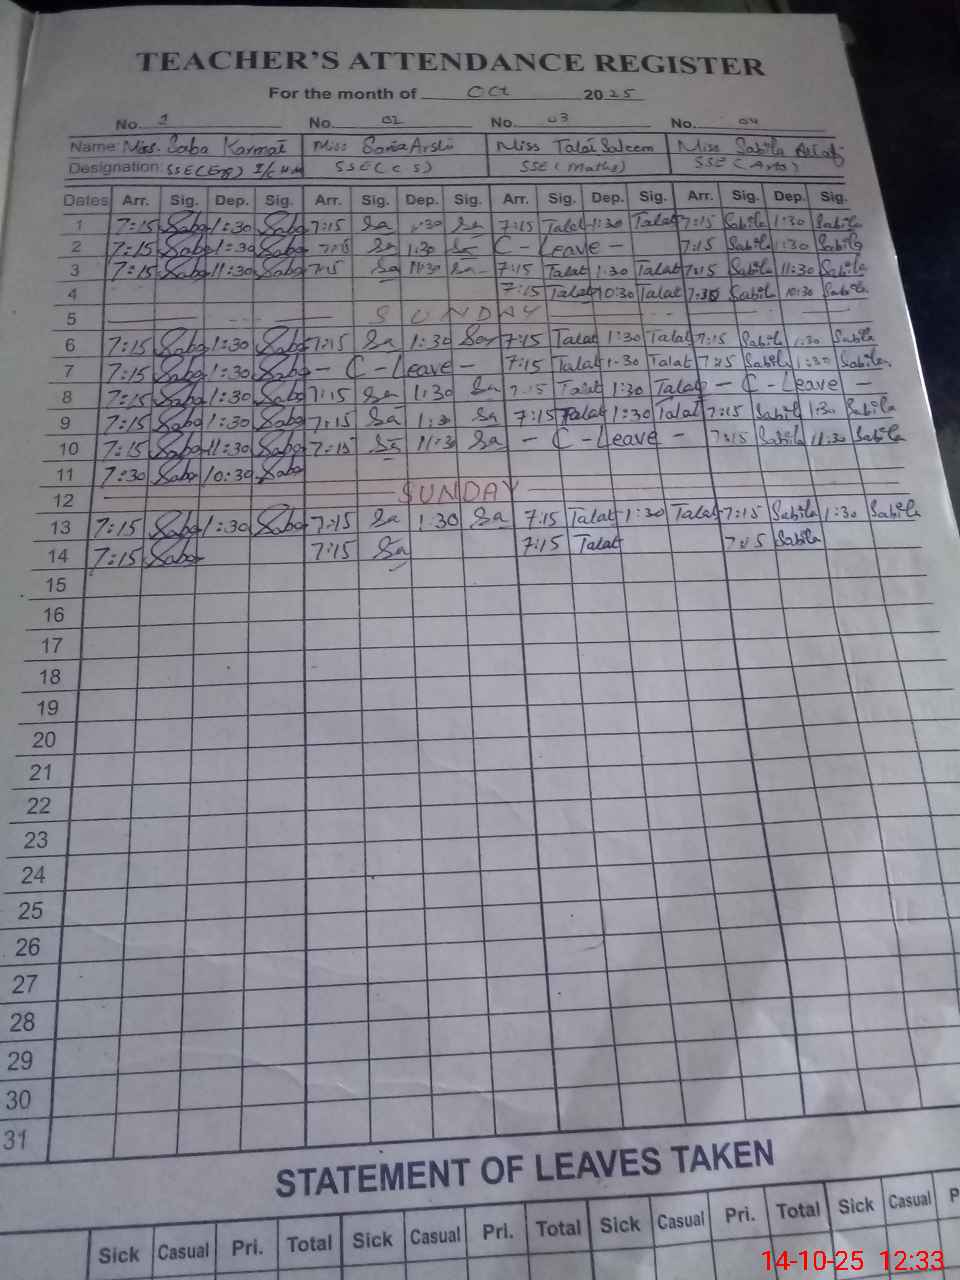 TEACHER'S ATTENDANCE REGISTER
For the month of Oct 2025
No. 1 No. 02 No. 03 No. 04
Name: Miss. Saba Karmat Miss Sania Arshi Miss Talat Saleem Miss Sabila
Designation: SSE(Eng) I/C HM SSE(CS) SSE(Maths) SSE(Arts)
Dates Arr. Sig. Dep. Sig. Arr. Sig. Dep. Sig. Arr. Sig. Dep. Sig. Arr. Sig. Dep. Sig.
1 7:15 Saba 1:30 Saba 7:15 Sa 1:30 Sa 7:15 Talat 1:30 Talat 7:15 Sabila 1:30 Sabila
2 7:15 Saba 1:30 Saba 7:15 Sa 1:30 Sa C - Leave - 7:15 Sabila 1:30 Sabila
3 7:15 Saba 11:30 Saba 7:15 Sa 11:30 Sa 7:15 Talat 1:30 Talat 7:15 Sabila 11:30 Sabila
4 7:15 Talat 10:30 Talat 7:30 Sabila 10:30 Sabila
5 SUNDAY
6 7:15 Saba 1:30 Saba 7:15 Sa 1:30 Sa 7:15 Talat 1:30 Talat 7:15 Sabila 1:30 Sabila
7 7:15 Saba 1:30 Saba - C - Leave - 7:15 Talat 1:30 Talat 7:15 Sabila 1:30 Sabila
8 7:15 Saba 1:30 Saba 7:15 Sa 1:30 Sa 7:15 Talat 1:30 Talat - C - Leave -
9 7:15 Saba 1:30 Saba 7:15 Sa 1:30 Sa 7:15 Talat 1:30 Talat 7:15 Sabila 1:30 Sabila
10 7:15 Saba 11:30 Saba 7:15 Sa 11:30 Sa - C - Leave - 7:15 Sabila 11:30 Sabila
11 7:30 Saba 10:30 Saba
12 SUNDAY
13 7:15 Saba 1:30 Saba 7:15 Sa 1:30 Sa 7:15 Talat 1:30 Talat 7:15 Sabila 1:30 Sabila
14 7:15 Saba 7:15 Sa 7:15 Talat 7:15 Sabila
15
16
17
18
19
20
21
22
23
24
25
26
27
28
29
30
31
STATEMENT OF LEAVES TAKEN
Sick Casual Pri. Total Sick Casual Pri. Total Sick Casual Pri. Total Sick Casual P
14-10-25 12:33